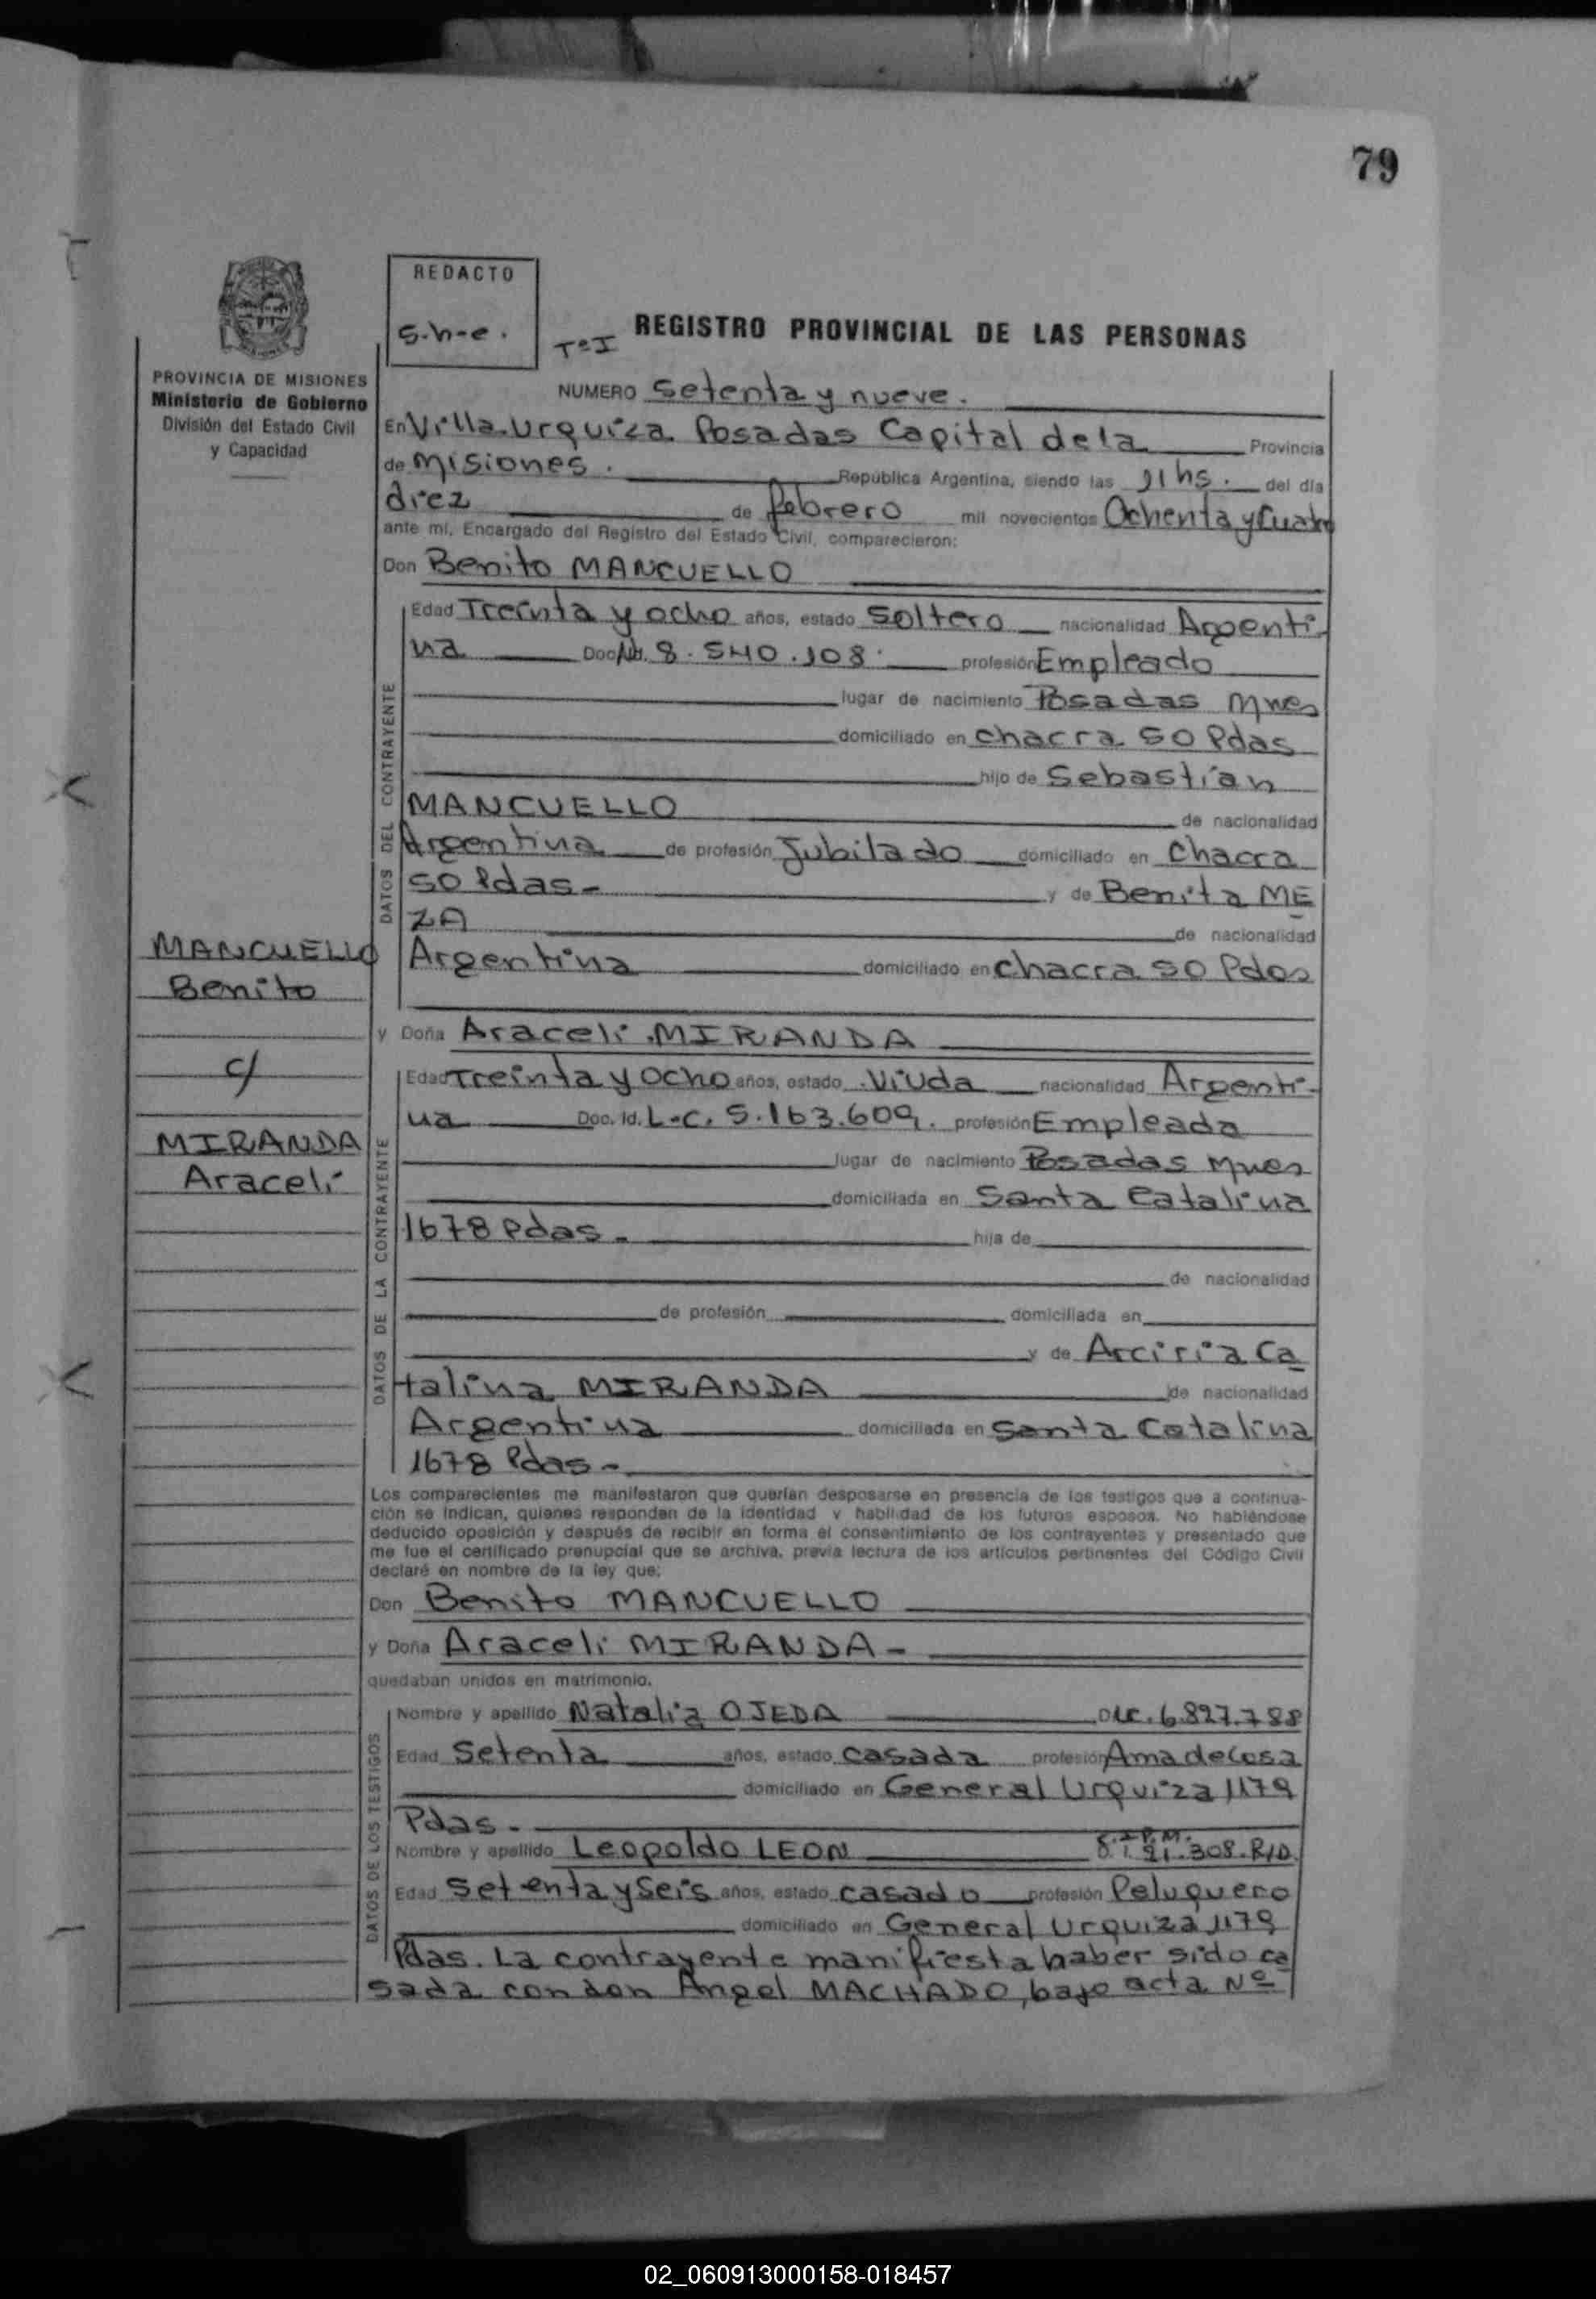 79
REDACTO
S.h-e.
TºI
REGISTRO PROVINCIAL DE LAS PERSONAS
PROVINCIA DE MISIONES
Ministerio de Gobierno
División del Estado Civil
y Capacidad
NUMERO Setenta y nueve.
En Villa Urquiza Posadas Capital de la Provincia
de Misiones. República Argentina, siendo las 11 hs. del día
diez de febrero mil novecientos Ochenta y Cuatro
ante mi, Encargado del Registro del Estado Civil, comparecieron:
Don Benito MANCUELLO
Edad Treinta y ocho años, estado Soltero nacionalidad Argenti-
na Doc. 8.540.108 profesión Empleado
lugar de nacimiento Posadas Mnes
domiciliado en chacra 50 Pdas
hijo de Sebastian
MANCUELLO de nacionalidad
Argentina de profesión Jubilado domiciliado en Chacra
50 Pdas- y de Benita ME
ZA de nacionalidad
Argentina domiciliado en chacra 50 Pdas
DATOS DEL CONTRAYENTE
MANCUELLO
Benito
c/
MIRANDA
Araceli
y Doña Araceli MIRANDA
Edad Treinta y Ocho años, estado Viuda nacionalidad Argenti-
na Doc. Id. L-C. 5.163.609. profesión Empleada
lugar de nacimiento Posadas Mnes
domiciliada en Santa Catalina
1678 Pdas. hija de
de nacionalidad
de profesión domiciliada en
y de Arciria Ca
talina MIRANDA de nacionalidad
Argentina domiciliada en Santa Catalina
1678 Pdas-
DATOS DE LA CONTRAYENTE
Los comparecientes me manifestaron que querían desposarse en presencia de los testigos que a continua-
ción se indican, quienes responden de la identidad y habilidad de los futuros esposos. No habiéndose
deducido oposición y después de recibir en forma el consentimiento de los contrayentes y presentado que
me fue el certificado prenupcial que se archiva, previa lectura de los artículos pertinentes del Código Civil
declaré en nombre de la ley que:
Don Benito MANCUELLO
y Doña Araceli MIRANDA-
quedaban unidos en matrimonio.
Nombre y apellido Natalia OJEDA 6.827.788
Edad Setenta años, estado casada profesión Ama de Casa
domiciliado en General Urquiza 1179
Pdas.
Nombre y apellido Leopoldo LEON 91.308. R/D.
Edad Setenta y Seis años, estado casado profesión Peluquero
domiciliado en General Urquiza 1179
Pdas. La contrayente manifiesta haber sido ca
sada con don Angel MACHADO, bajo acta Nº
DATOS DE LOS TESTIGOS
02_060913000158-018457